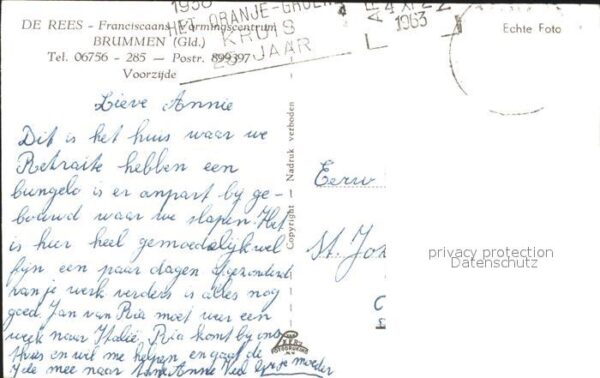 DE REES - Franciscaans Vormingscentrum
BRUMMEN (Gld.)
Tel. 06756 - 285 — Postr. 899397
Voorzijde
1938
HET ORANJE-GROENE
KRUIS
25 JAAR
1963
Echte Foto
Lieve Annie
Dit is het huis waar we
Retraite hebben een
bungelo is er anpart bij ge-
bouwd waar we slapen. Het
is hier heel gemoedelijk wel
fijn een paar dagen afgezonderd
van je werk verders is alles nog
goed. Jan van Ria moet weer een
week naar Italië. Ria komt bij ons
thuis en wil me helpen en gaat de
mee naar Annie Veel je moeder
Copyright — Nadruk verboden
Eerw
St. Jo
privacy protection
Datenschutz